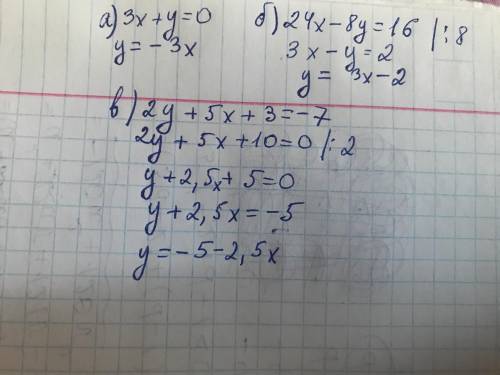 а) 3x+y=0
y=-3x
б) 24x-8y=16 |:8
3x-y=2
y= 3x-2
в) 2y+5x+3=-7
2y+5x+10=0 |:2
y+2,5x+5=0
y+2,5x=-5
y=-5-2,5x